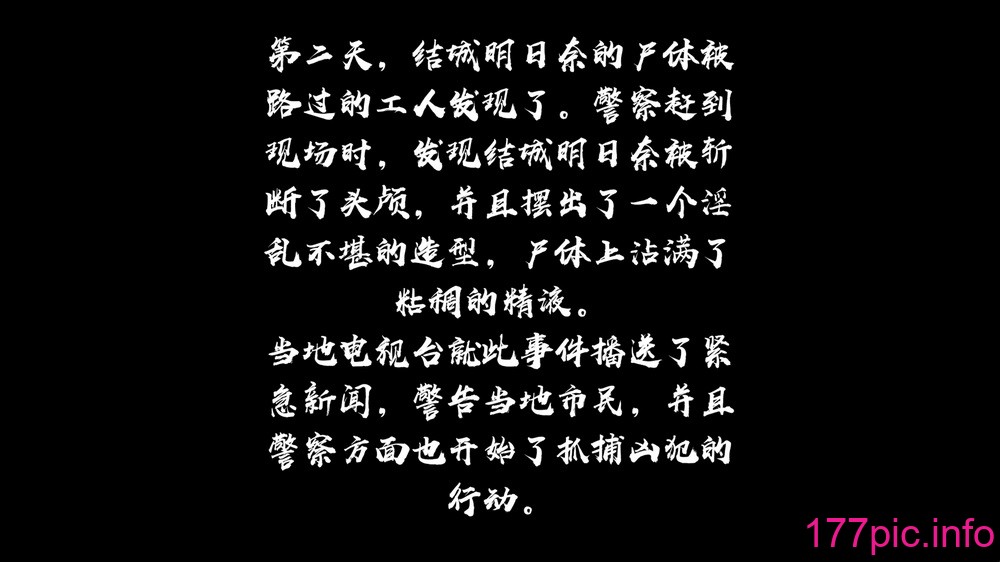 第二天，结城明日奈的尸体被
路过的工人发现了。警察赶到
现场时，发现结城明日奈被斩
断了头颅，并且摆出了一个淫
乱不堪的造型，尸体上沾满了
粘稠的精液。
当地电视台就此事件播送了紧
急新闻，警告当地市民，并且
警察方面也开始了抓捕凶犯的
行动。
177pic.info